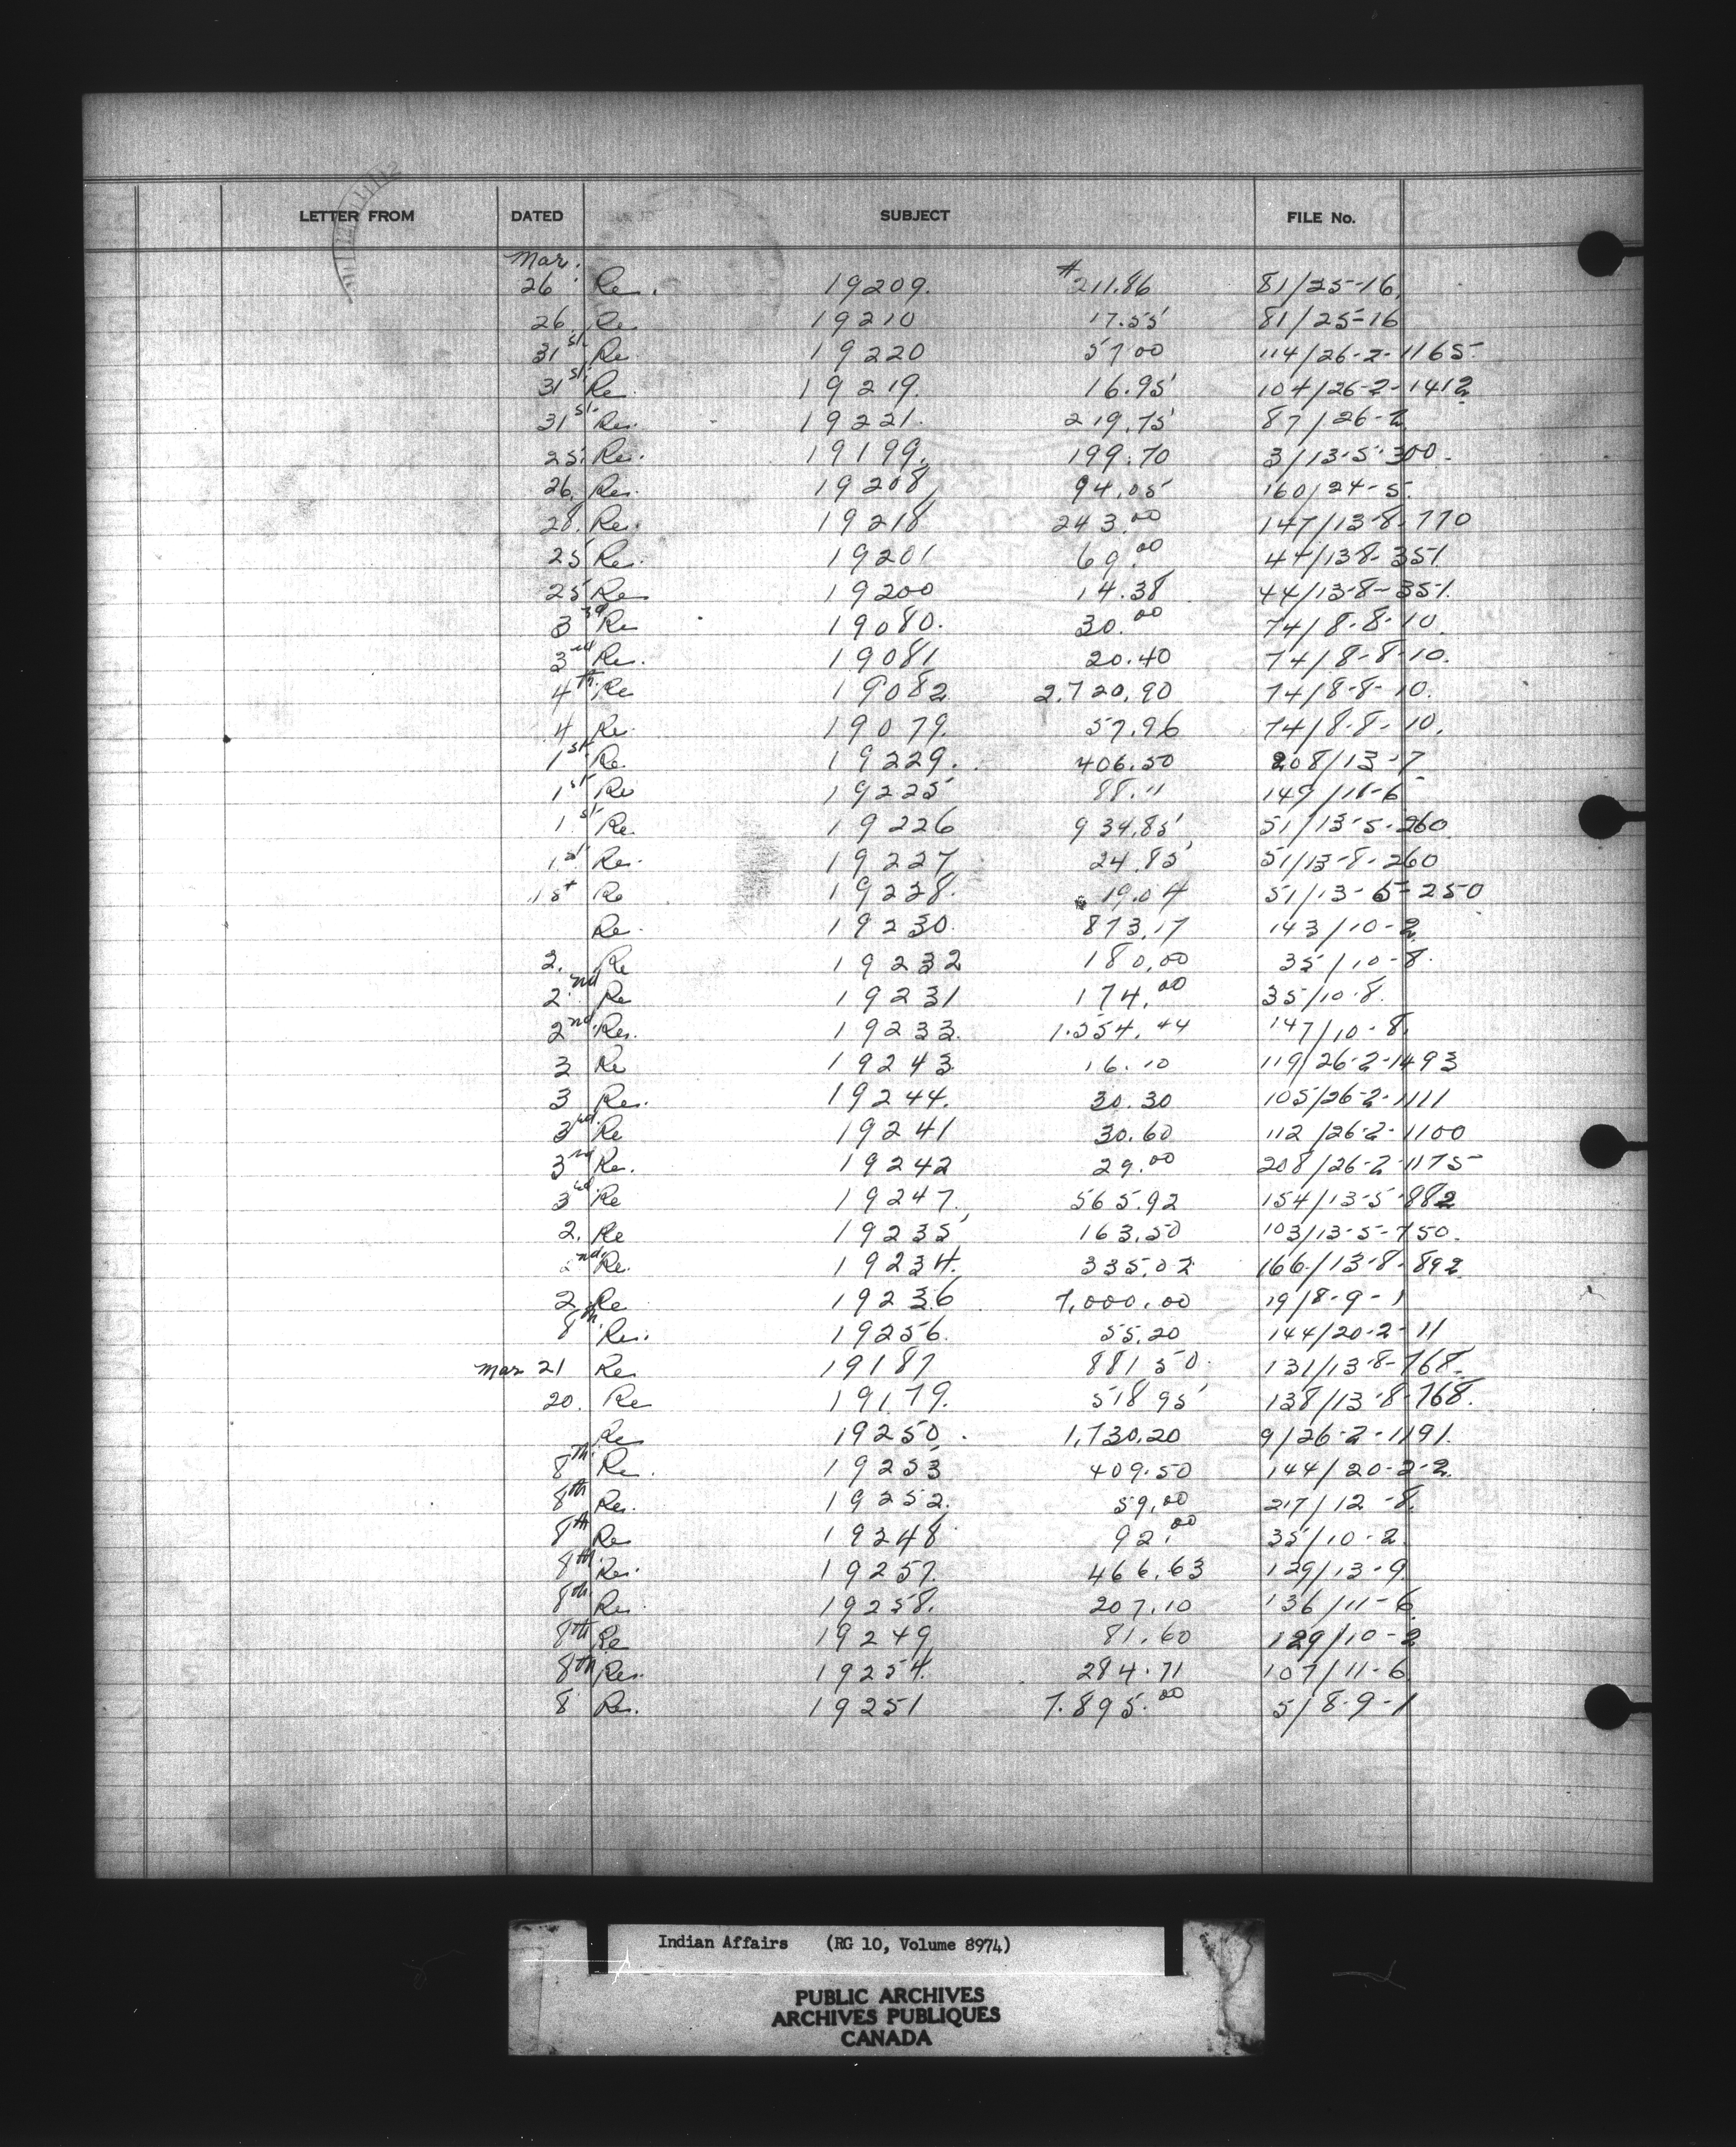 LETTER FROM DATED SUBJECT FILE No.
Mar.
26 Re. 19209. # 211.86 81/25-16
26. Re 19210 17.55 81/25-16
31st Re. 19220 57.00 114/26-2-1165-
31st Re. 19219. 16.95 104/26-2-1412
31st Re. 19221. 219.75 87/26-2
25. Re. 19199. 199.70 3/13-5-300.
26. Re. 19208 94.05 160/24-5.
28. Re. 19218 243.00 147/13-8-770
25 Re. 19201 69.00 44/13-8-351
25 Re 19200 14.38 44/13-8-351.
3rd Re 19080. 30.00 74/8-8-10.
3rd Re. 19081 20.40 74/8-8-10.
4th Re 19082 2,720.90 74/8-8-10.
4 Re. 19079. 57.96 74/8-8-10.
1st Re. 19229. 406.50 208/13-7
1st Re 19225 88.11 149/11-6
1st Re. 19226 934.85 51/13-5-260
1st Re. 19227 24.85 51/13-8-260
1st Re 19228. 19.04 51/13-5-250
Re. 19230. 873.17 143/10-2
2. Re 19232 180.00 35/10-8.
2nd Re 19231 174.00 35/10-8.
2nd Re. 19233. 1.554.44 147/10-8.
3 Re 19243. 16.10 119/26-2-1493
3 Re. 19244. 30.30 105/26-2-1111
3rd Re 19241 30.60 112/26-2-1100
3rd Re. 19242 29.00 208/26-2-1175-
3rd Re 19247. 565.92 154/13-5-882
2. Re 19235 163.50 103/13-5-750.
2nd. Re. 19234. 335.02 166/13-8-892
2 Re 19236 7,000.00 19/8-9-1
8th Re. 19256. 55.20 144/20-2-11
Mar 21 Re 19187 881 50. 131/13-8-768.
20. Re 19179. 518 95 138/13-8-768.
Re 19250. 1,730.20 9/26-2-1191.
8th Re. 19253 409.50 144/20-2-2.
8th Re. 19252. 59.00 217/12-8.
8th Re 19248 92.00 35/10-2.
8th Re. 19257. 466.63 129/13-9
8th Re. 19258. 207.10 136/11-6
8th Re 19249 81.60 129/10-2
8th Re. 19254. 284.71 107/11-6
8 Re. 19251 7.895.00 5/8-9-1
Indian Affairs (RG 10, Volume 8974)
PUBLIC ARCHIVES
ARCHIVES PUBLIQUES
CANADA